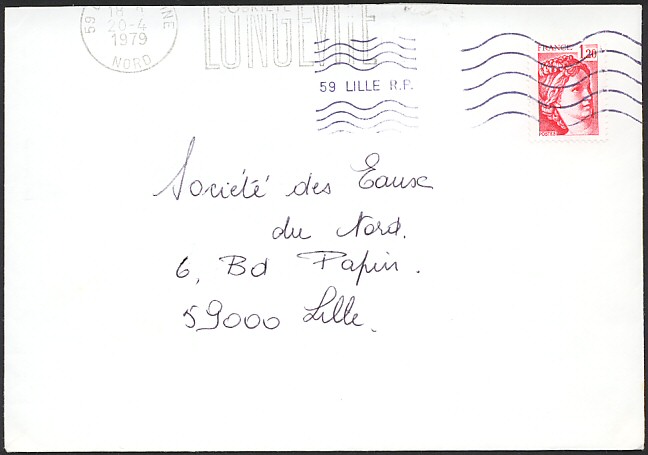 59
18-
20-4
1979
NORD
SOBRIÉTÉ
LONGEVITE
59 LILLE R.P.
FRANCE
1,20
POSTES
Société des Eaux
du Nord.
6, Bd Papin.
59000 Lille.